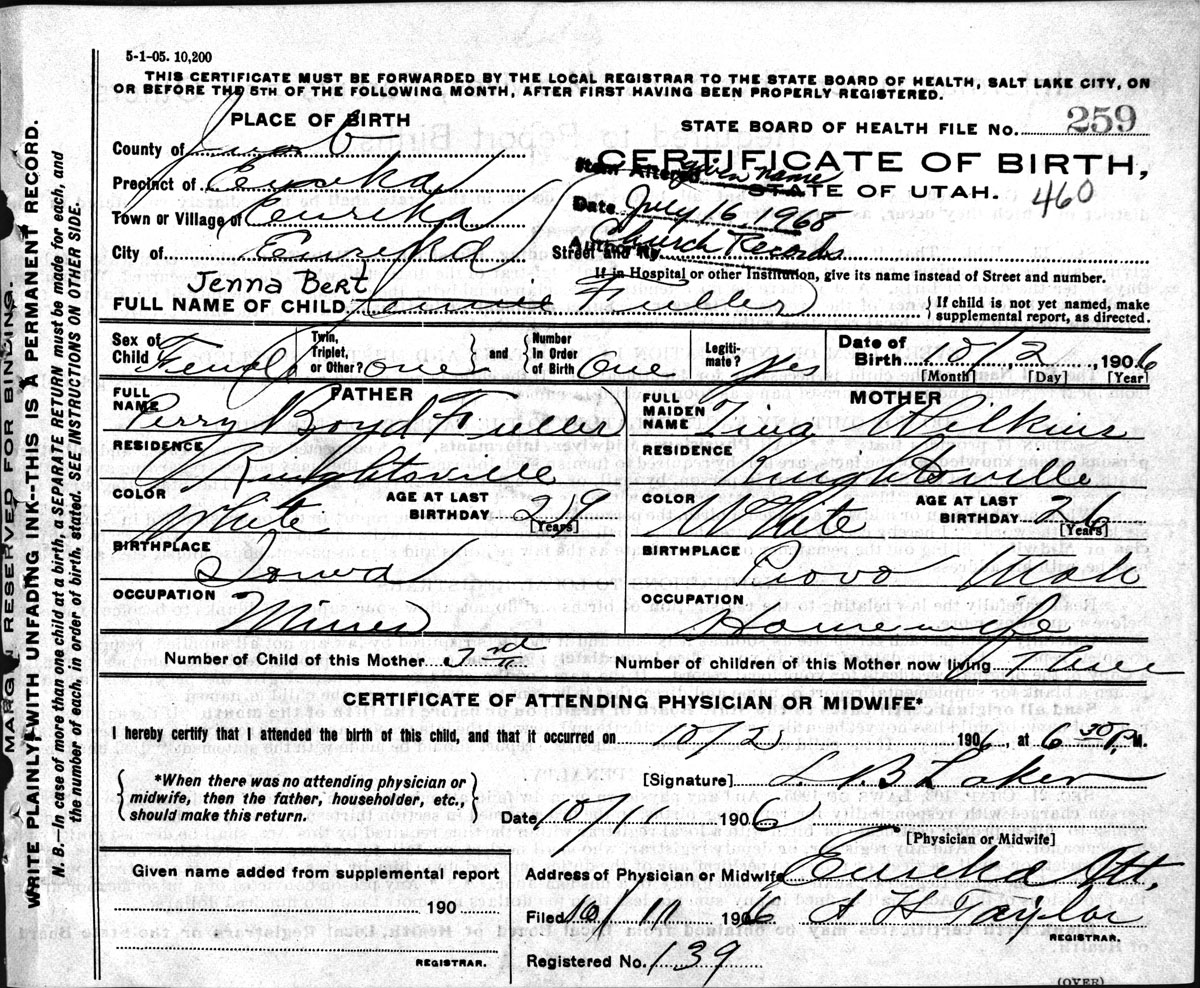 5-1-05. 10,200
THIS CERTIFICATE MUST BE FORWARDED BY THE LOCAL REGISTRAR TO THE STATE BOARD OF HEALTH, SALT LAKE CITY, ON
OR BEFORE THE 5TH OF THE FOLLOWING MONTH, AFTER FIRST HAVING BEEN PROPERLY REGISTERED.
PLACE OF BIRTH
STATE BOARD OF HEALTH FILE No. 259
County of Juab
CERTIFICATE OF BIRTH,
Item Altered given name
Precinct of Eureka
STATE OF UTAH. 460
Date July 16, 1968
Town or Village of Eureka
Church Records
City of Eureka Street and No.
If in Hospital or other Institution, give its name instead of Street and number.
Jenna Bert
FULL NAME OF CHILD Fuller
If child is not yet named, make
supplemental report, as directed.
Sex of
Child Female
Twin,
Triplet,
or Other? one
and
Number
In Order
of Birth one
Legiti-
mate? yes
Date of
Birth 10/2, 1906
[Month] [Day] [Year]
FATHER
FULL
NAME Perry Boyd Fuller
RESIDENCE
Knightsville
COLOR
White
AGE AT LAST
BIRTHDAY 29
[Years]
BIRTHPLACE
Iowa
OCCUPATION
Miner
MOTHER
FULL
MAIDEN
NAME Tina Wilkins
RESIDENCE
Knightsville
COLOR
White
AGE AT LAST
BIRTHDAY 26
[Years]
BIRTHPLACE
Provo Utah
OCCUPATION
Housewife
Number of Child of this Mother
Number of children of this Mother now living Three
CERTIFICATE OF ATTENDING PHYSICIAN OR MIDWIFE*
I hereby certify that I attended the birth of this child, and that it occurred on 10/2 1906, at 6 30 P. M.
*When there was no attending physician or
midwife, then the father, householder, etc.,
should make this return.
[Signature] L B Laker
Date 10/11 1906
[Physician or Midwife]
Given name added from supplemental report
190
REGISTRAR.
Address of Physician or Midwife Eureka
Filed 10/11 1906 Taylor
REGISTRAR.
Registered No. 139
(OVER)
MARGIN RESERVED FOR BINDING.
WRITE PLAINLY WITH UNFADING INK--THIS IS A PERMANENT RECORD.
N. B.--In case of more than one child at a birth, a SEPARATE RETURN must be made for each, and
the number of each, in order of birth, stated. SEE INSTRUCTIONS ON OTHER SIDE.